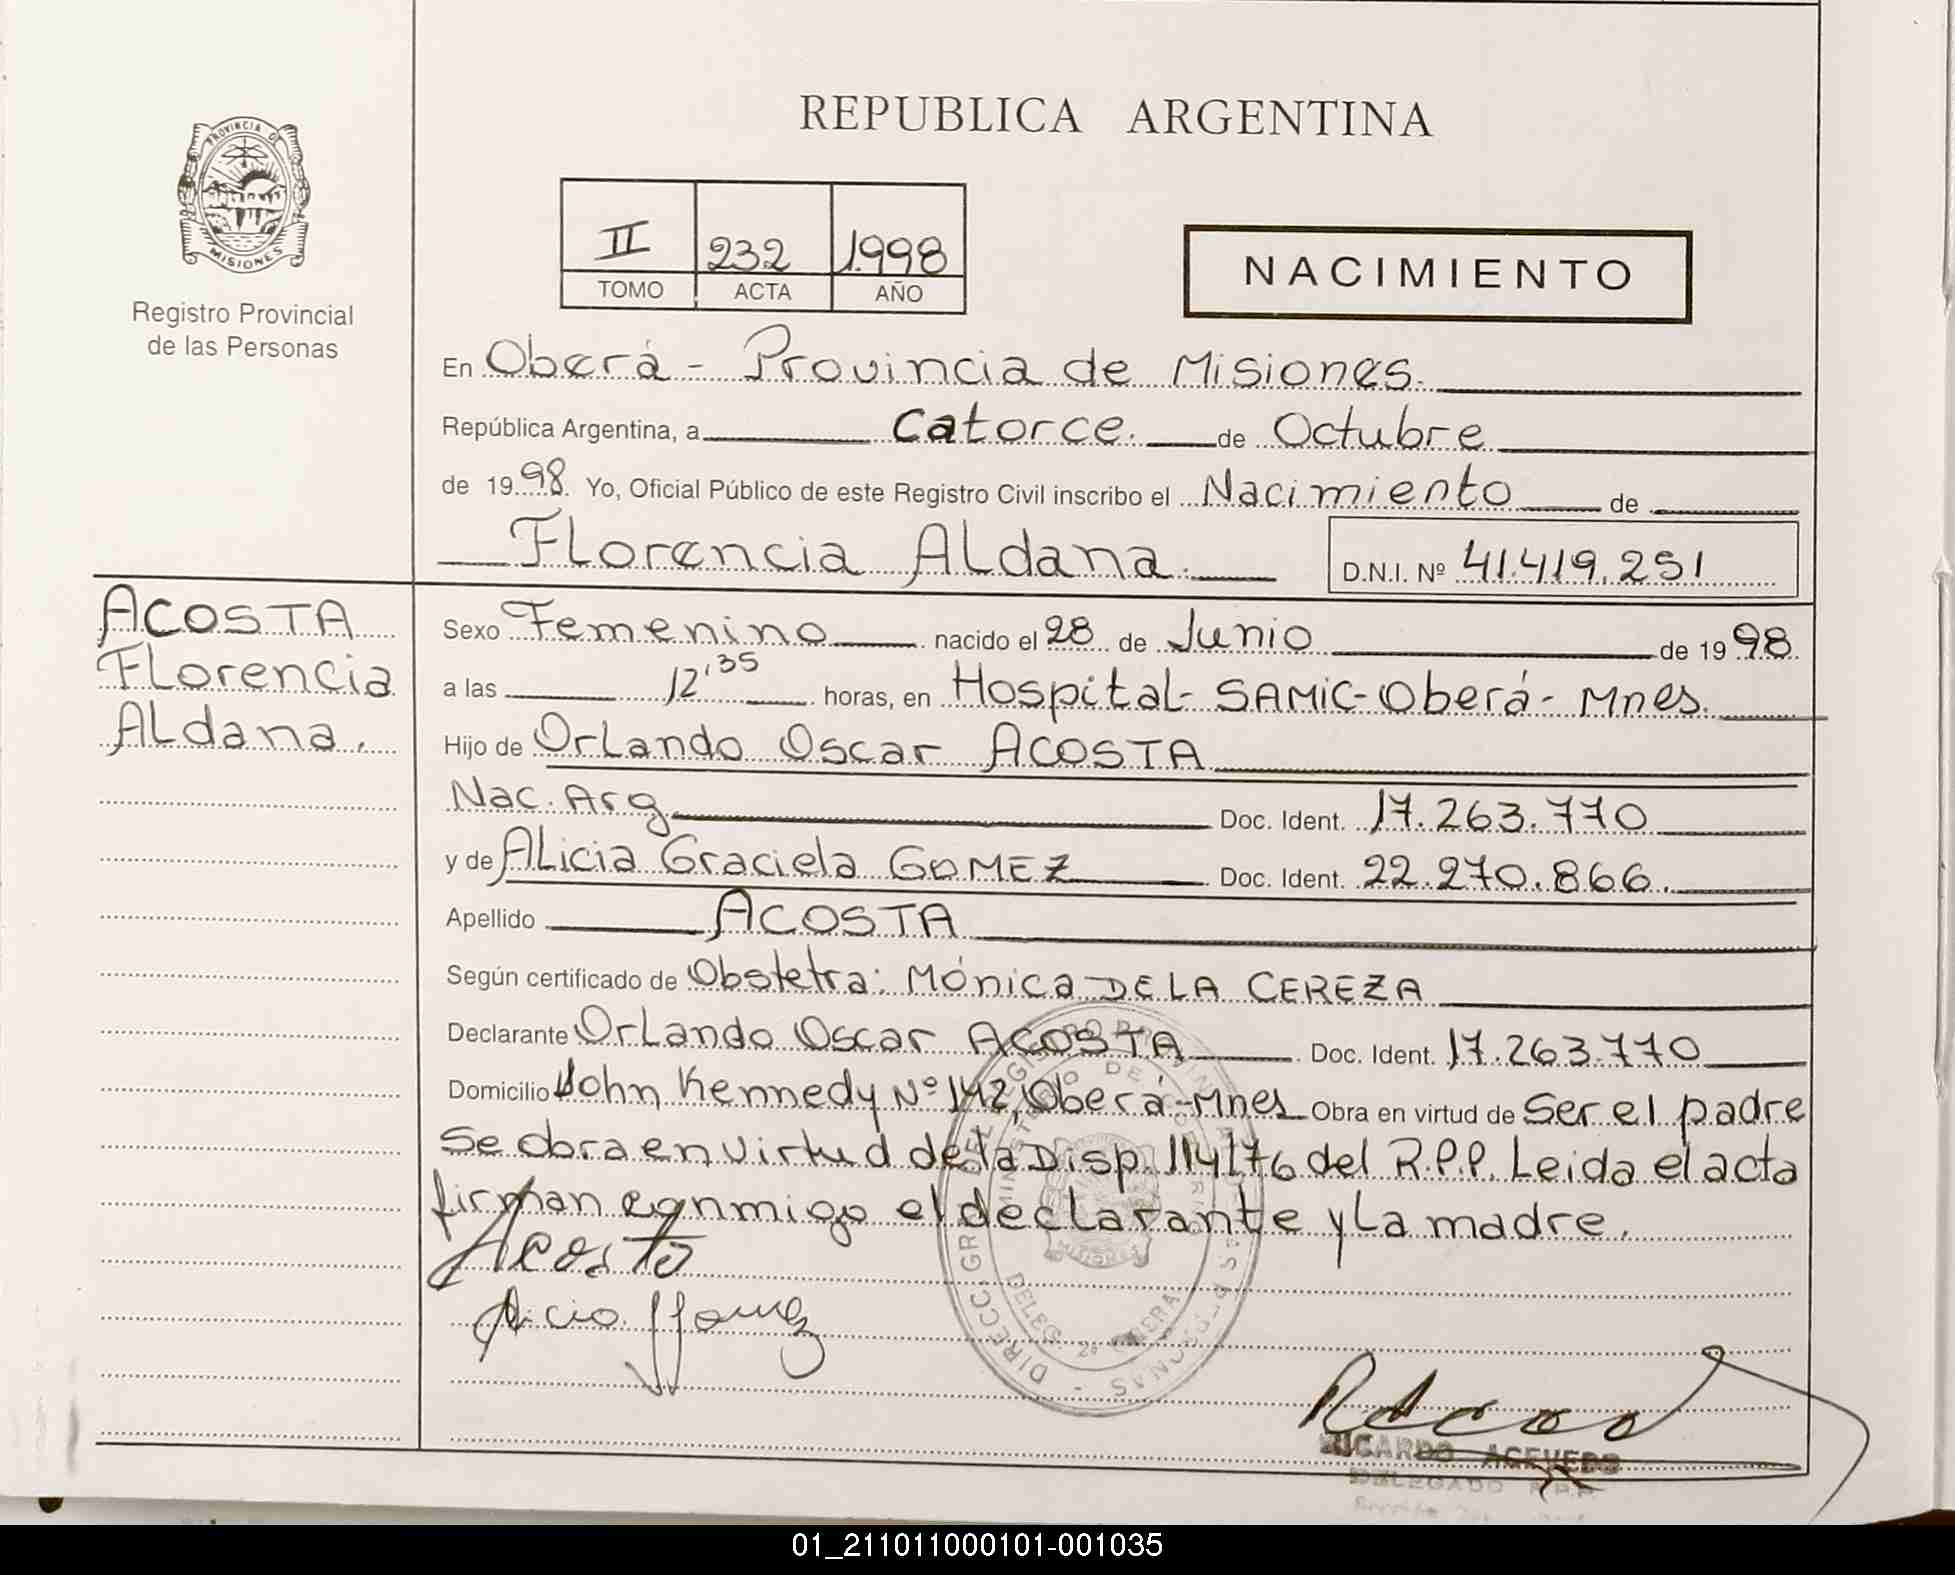 PROVINCIA DE
MISIONES
Registro Provincial
de las Personas
REPUBLICA ARGENTINA
II 232 1.998
TOMO ACTA AÑO
NACIMIENTO
En Oberá - Provincia de Misiones.
República Argentina, a Catorce. de Octubre
de 19 98. Yo, Oficial Público de este Registro Civil inscribo el Nacimiento de
Florencia Aldana.
D.N.I. Nº 41.419.251
ACOSTA
Florencia
Aldana.
Sexo Femenino nacido el 28 de Junio de 19 98.
a las 12'35 horas, en Hospital- SAMIC-Oberá- Mnes.
Hijo de Orlando Oscar ACOSTA
Nac. Arg Doc. Ident. 17.263.770
y de Alicia Graciela GOMEZ Doc. Ident. 22.270.866.
Apellido ACOSTA
Según certificado de Obstetra: Mónica DE LA CEREZA
Declarante Orlando Oscar ACOSTA Doc. Ident. 17.263.770
Domicilio John Kennedy Nº 142, Oberá-Mnes Obra en virtud de Ser el padre
Se obra en virtud de la Disp. 114/76 del R.P.P. Leida el acta
firman conmigo el declarante y la madre.
Acosta
Alicia G Gomez
RICARDO ACEVEDO
DELEGADO R.P.P.
01_211011000101-001035